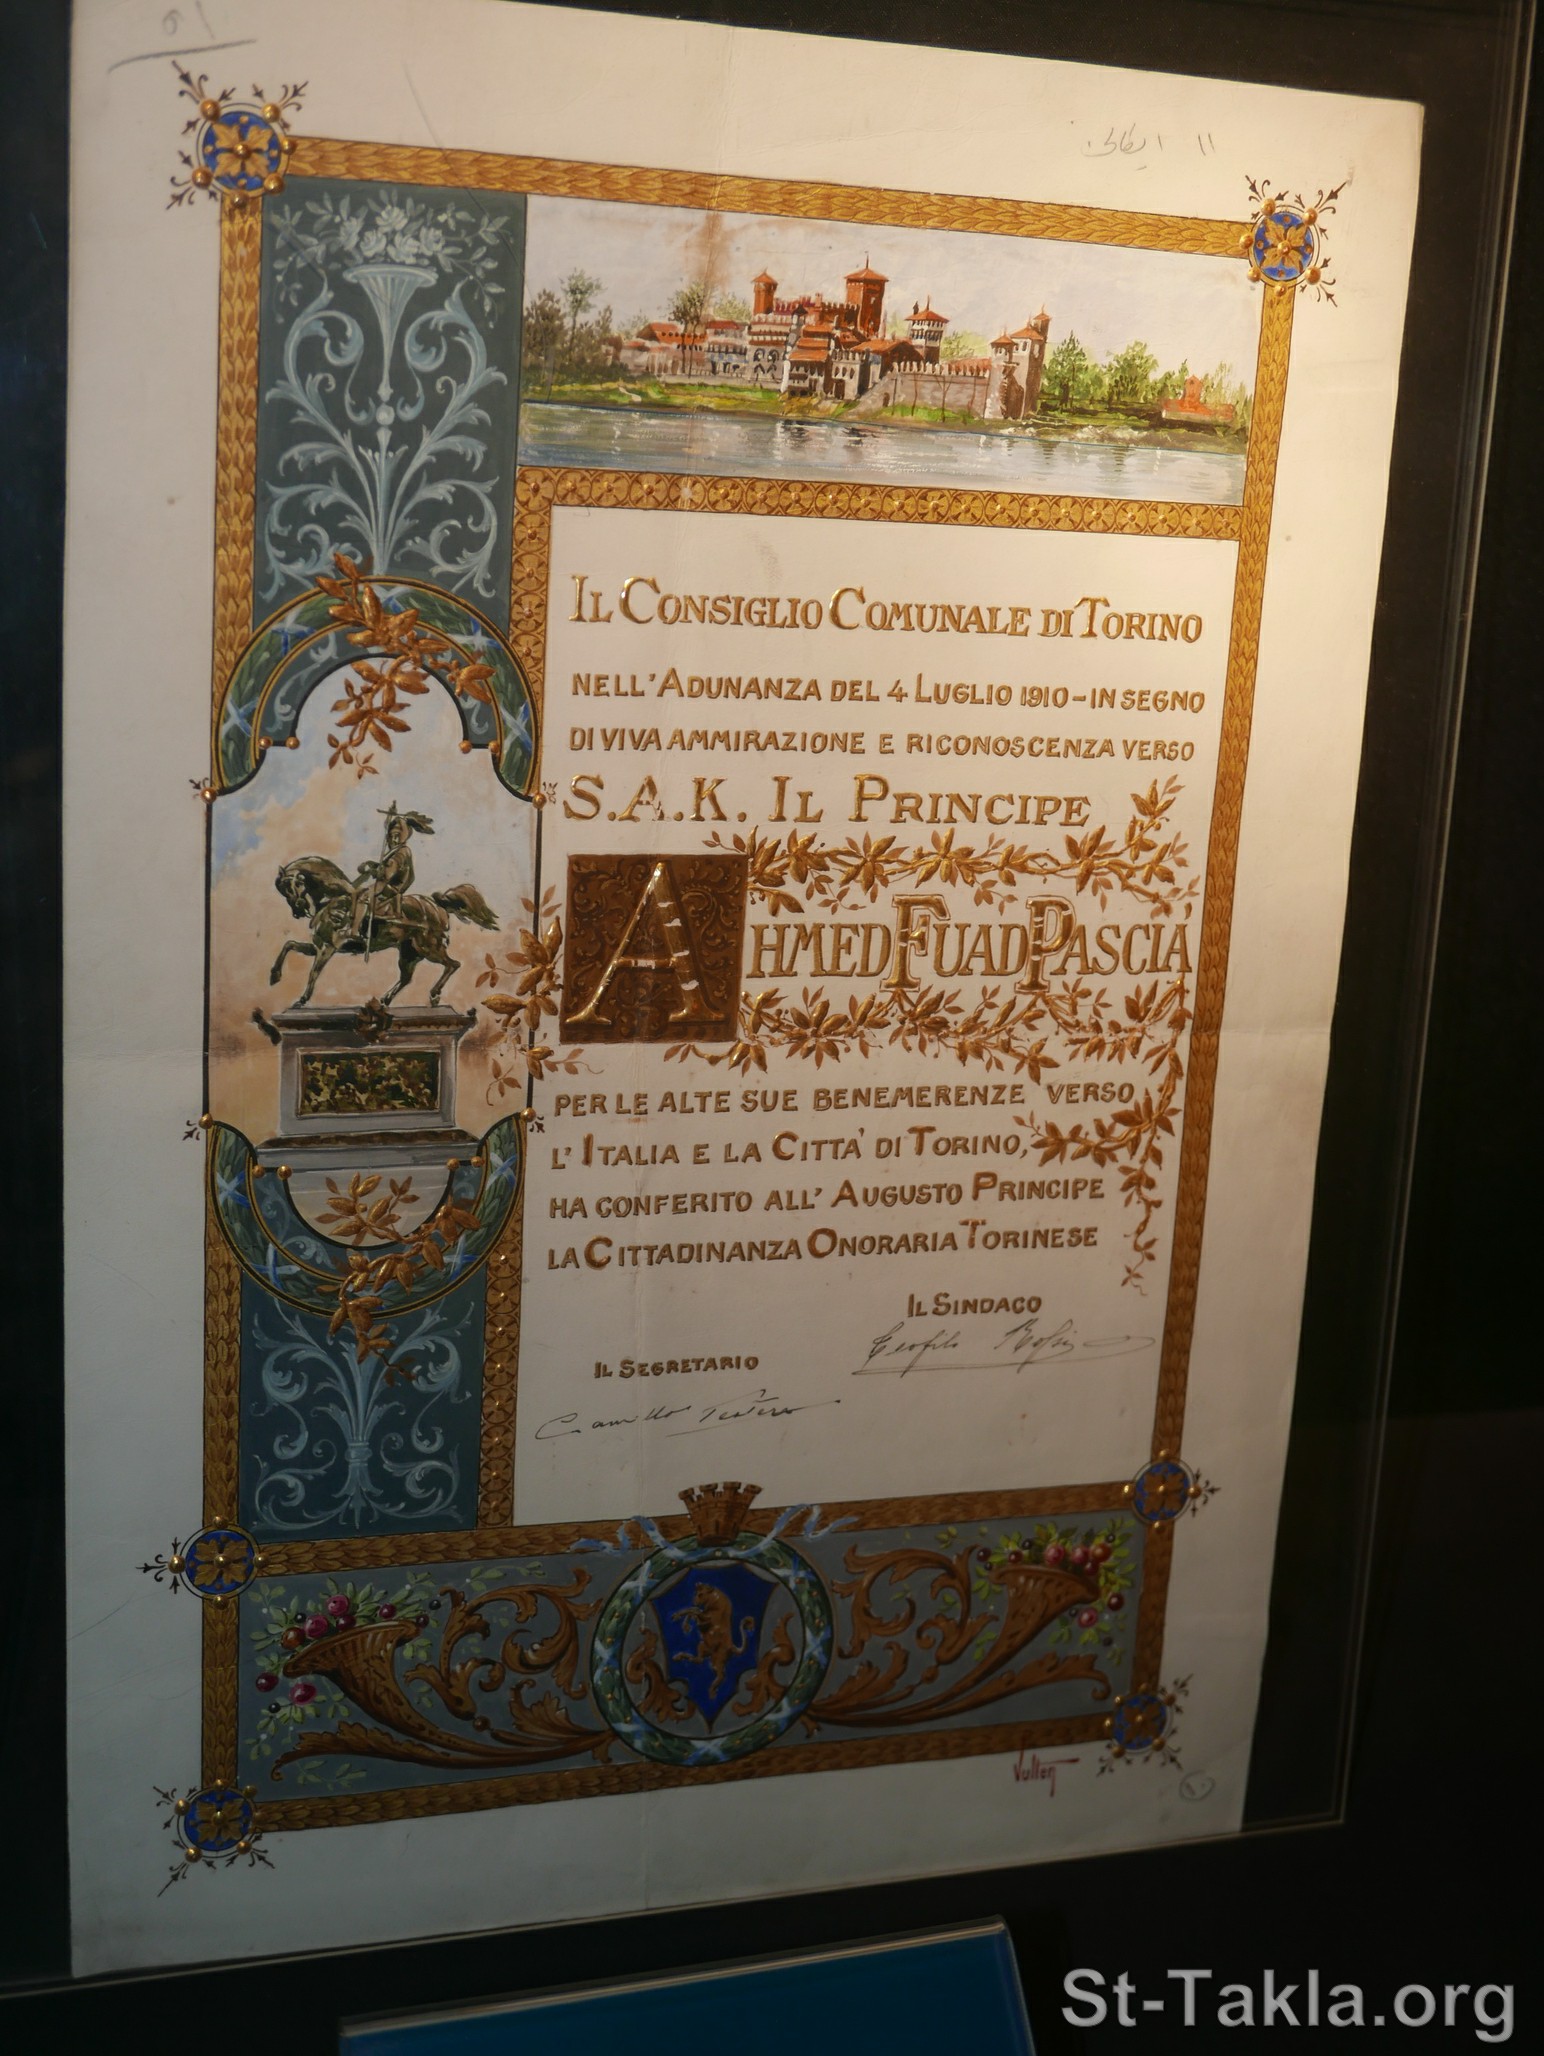 ١٥
١١ ايطالى
IL CONSIGLIO COMUNALE DI TORINO
NELL'ADUNANZA DEL 4 LUGLIO 1910 – IN SEGNO
DI VIVA AMMIRAZIONE E RICONOSCENZA VERSO
S.A.K. IL PRINCIPE
AHMED FUAD PASCIÀ
PER LE ALTE SUE BENEMERENZE VERSO
L'ITALIA E LA CITTÀ DI TORINO,
HA CONFERITO ALL'AUGUSTO PRINCIPE
LA CITTADINANZA ONORARIA TORINESE
IL SINDACO
Teofilo Rossi
IL SEGRETARIO
Camillo
St-Takla.org